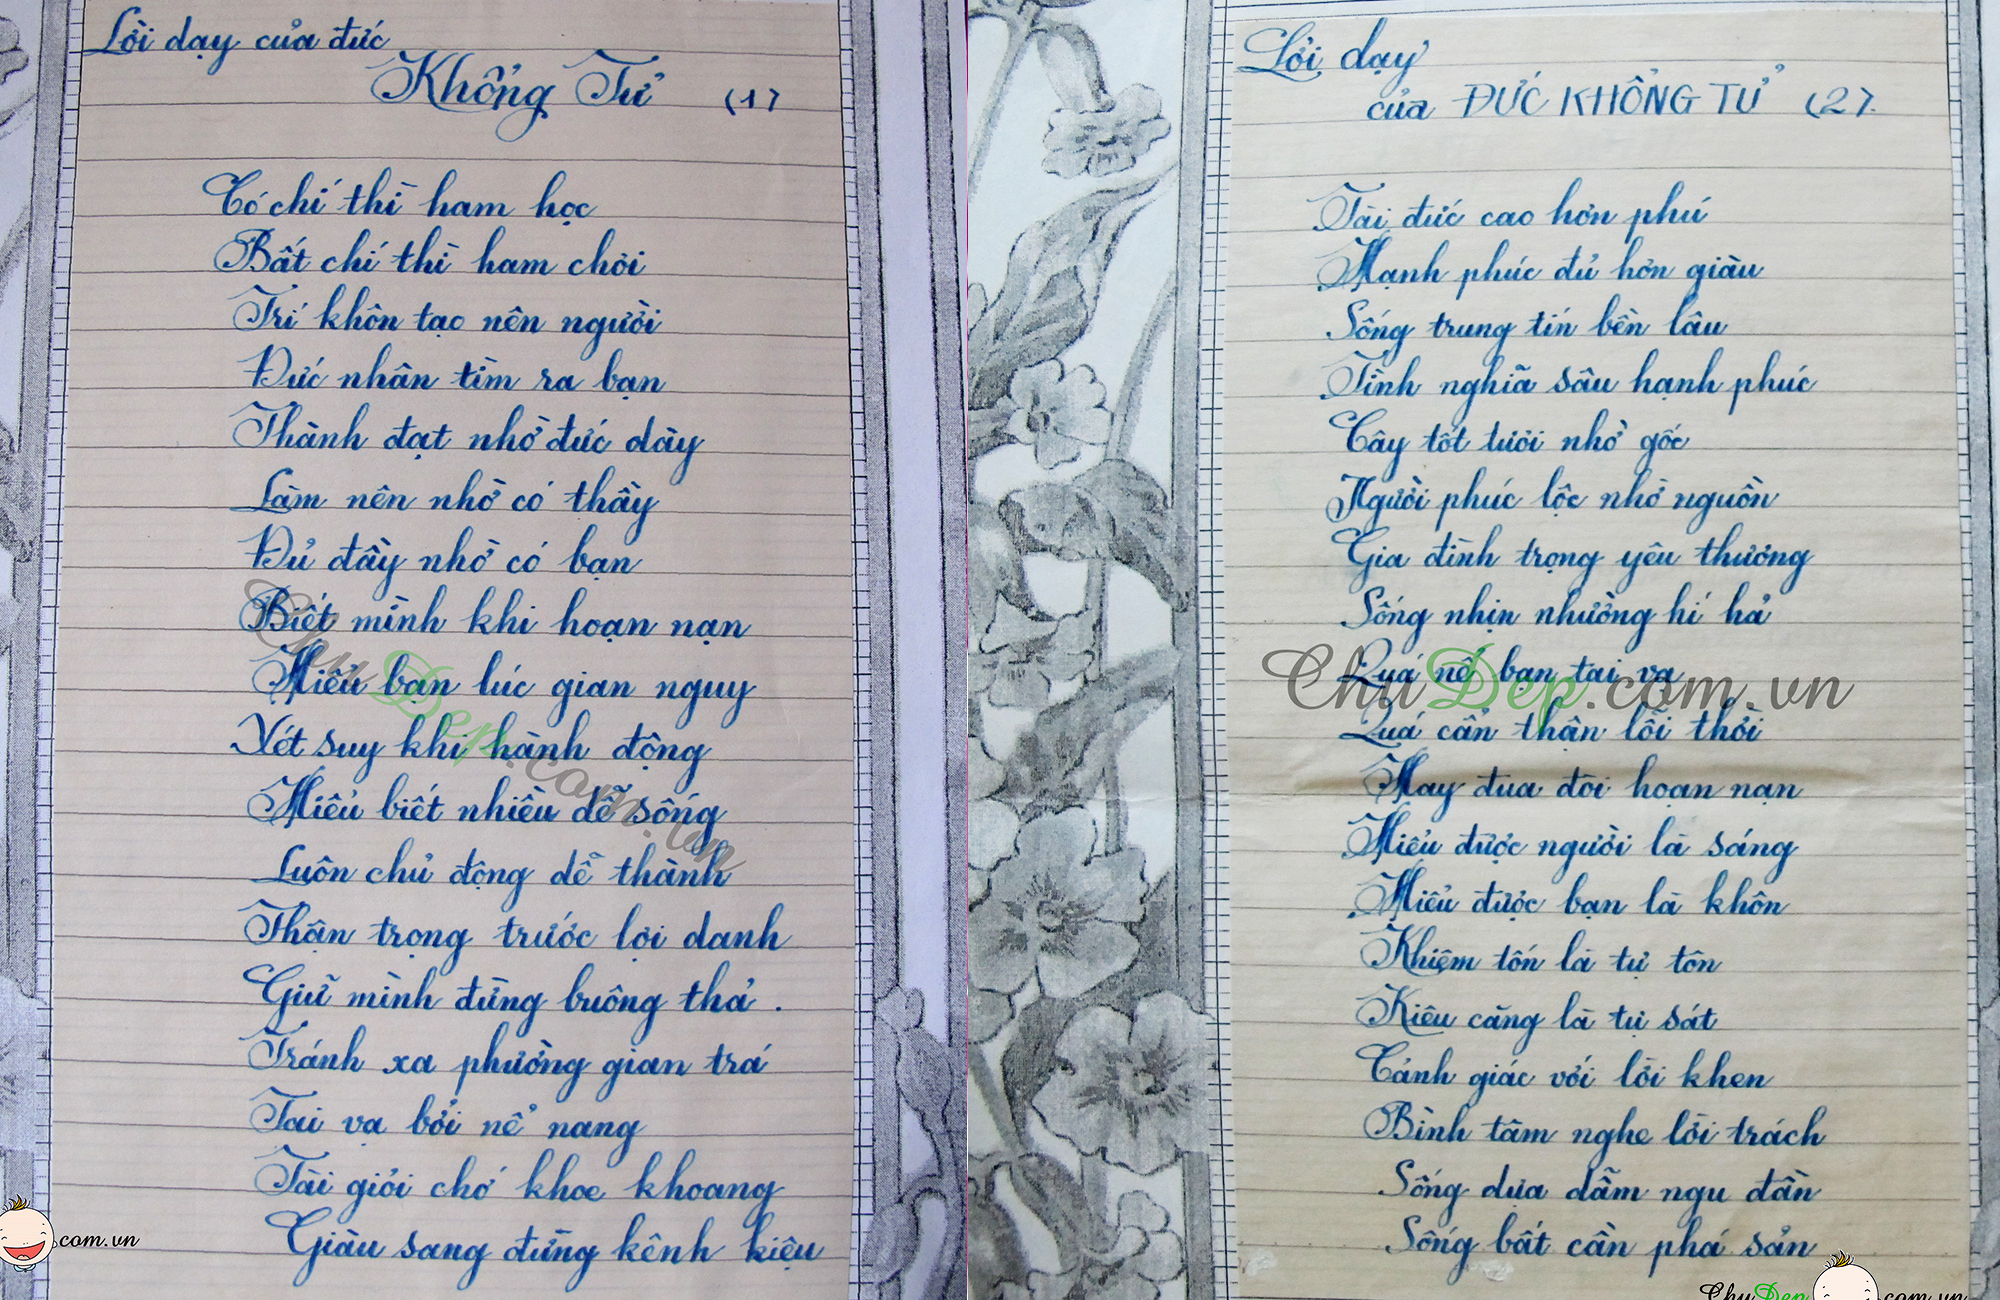 Lời dạy của đức
Khổng Tử (1)
Có chí thì ham học
Bất chí thì ham chơi
Trí khôn tạo nên người
Đức nhân tìm ra bạn
Thành đạt nhờ đức dày
Làm nên nhờ có thầy
Đủ đầy nhờ có bạn
Biết mình khi hoạn nạn
Hiểu bạn lúc gian nguy
Xét suy khi hành động
Hiểu biết nhiều dễ sống
Luôn chủ động dề thành
Thận trọng trước lợi danh
Giữ mình đừng buông thả .
Tránh xa phường gian trá
Tai vạ bởi nể nang
Tài giỏi chớ khoe khoang
Giàu sang đừng kênh kiệu
ChuDep.com.vn
com.vn
Lời dạy
của ĐỨC KHỔNG TỬ (2).
Tài đức cao hơn phú
Hạnh phúc đủ hơn giàu
Sống trung tín bền lâu
Tình nghĩa sâu hạnh phúc
Cây tốt tươi nhờ gốc
Người phúc lộc nhờ nguồn
Gia đình trọng yêu thương
Sống nhịn nhường hỉ hả
Quá nể bạn tai vạ
Quá cẩn thận lỗi thời
Hay đua đòi hoạn nạn
Hiểu được người là sáng
Hiểu được bạn là khôn
Khiêm tốn là tự tôn
Kiêu căng là tự sát
Cảnh giác với lời khen
Bình tâm nghe lời trách
Sống dựa dẫm ngu đần
Sống bất cần phá sản
ChuDep.com.vn
ChuDep com.vn